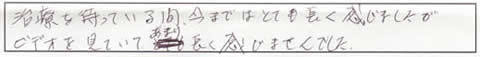 治療を待っている間、今まではとても長く感じましたが
ビデオを見ていてあまり長く感じませんでした。